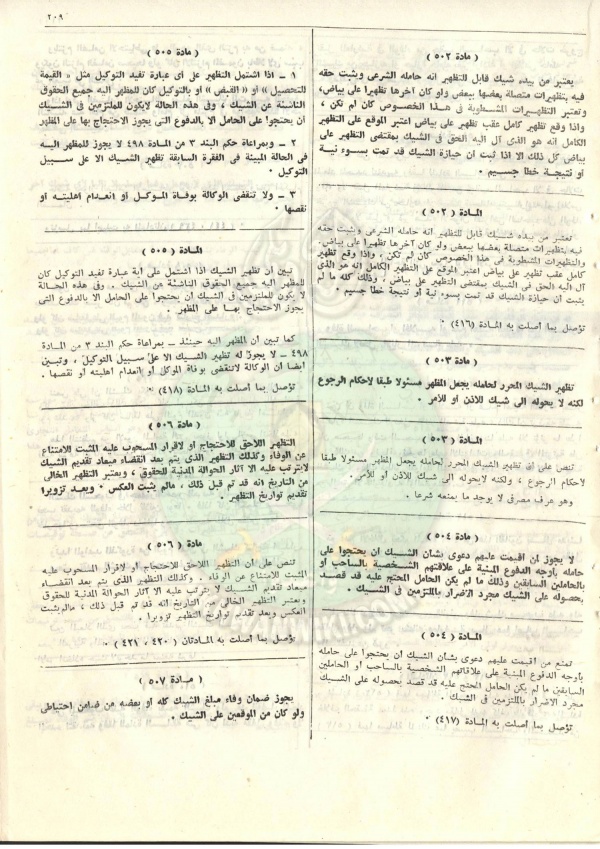 ٢٠٩
( مادة ٥٠٢ )
يعتبر من بيده شيك قابل للتظهير انه حامله الشرعى ويثبت حقه
فيه بتظهيرات متصلة بعضها ببعض ولو كان آخرها تظهيرا على بياض،
وتعتبر التظهيرات المشطوبة فى هذا الخصوص كان لم تكن ،
واذا وقع تظهير كامل عقب تظهير على بياض اعتبر الموقع على التظهير
الكامل انه هو الذى آل اليه الحق فى الشيك بمقتضى التظهير على
بياض كل ذلك الا اذا ثبت ان حيازة الشيك قد تمت بسوء نية
أو نتيجة خطا جسيم .
المادة ( ٥٠٢ )
تعتبر من بيده شيك قابل للتظهير انه حامله الشرعى ويثبت حقه
فيه بتظهيرات متصلة بعضها ببعض ولو كان آخرها تظهيرا على بياض.
والتظهيرات المشطوبة فى هذا الخصوص كان لم تكن ، واذا وقع تظهير
كامل عقب تظهير على بياض اعتبر الموقع على التظهير الكامل انه هو الذى
آل اليه الحق فى الشيك بمقتضى التظهير على بياض ، وذلك كله ما لم
يثبت أن حيازة الشيك قد تمت بسوء نية أو نتيجة خطأ جسيم .
تؤصل بما أصلت به المادة (٤١٦) .
( مادة ٥٠٣ )
تظهير الشيك المحرر لحامله يجعل المظهر مسئولا طبقا لاحكام الرجوع
لكنه لا يحوله الى شيك للأذن أو للأمر .
المادة ( ٥٠٣ )
تنص على أن تظهير الشيك المحرر لحامله يجعل المظهر مسئولا طبقا
لاحكام الرجوع ، ولكنه لايحوله الى شيك للأذن أو للأمر .
وهو عرف مصرفى لا يوجد ما يمنعه شرعا .
( مادة ٥٠٤ )
لا يجوز لمن اقيمت عليهم دعوى بشأن الشيك ان يحتجوا على
حامله بأوجه الدفوع المبنية على علاقتهم الشخصية بالساحب أو
بالحاملين السابقين وذلك ما لم يكن الحامل المحتج عليه قد قصد
بحصوله على الشيك مجرد الاضرار بالملتزمين فى الشيك .
المادة ( ٥٠٤ )
تمنع من اقيمت عليهم دعوى بشأن الشيك أن يحتجوا على حامله
بأوجه الدفوع المبنية على علاقاتهم الشخصية بالساحب أو الحاملين
السابقين ما لم يكن الحامل المحتج عليه قد قصد بحصوله على الشيك
مجرد الاضرار بالملتزمين فى الشيك .
تؤصل بما أصلت به المادة (٤١٧) .
( مادة ٥٠٥ )
١ ــ اذا اشتمل التظهير على أى عبارة تفيد التوكيل مثل « القيمة
للتحصيل » او « القبض » او بالتوكيل كان للمظهر اليه جميع الحقوق
الناشئة عن الشيك ، وفى هذه الحالة لايكون للملتزمين فى الشيك
أن يحتجوا على الحامل الا بالدفوع التى يجوز الاحتجاج بها على المظهر
٢ ــ وبمراعاة حكم البند ٣ من المادة ٤٩٨ لا يجوز للمظهر اليه
فى الحالة المبينة فى الفقرة السابقة تظهير الشيك الا على سبيل
التوكيل .
٣ ــ ولا تنقضى الوكالة بوفاة الموكل أو انعدام اهليته أو
نقصها .
المادة ( ٥٠٥ )
تبين أن تظهير الشيك اذا اشتمل على أية عبارة تفيد التوكيل كان
للمظهر اليه جميع الحقوق الناشئة عن الشيك . وفى هذه الحالة
لا يكون للملتزمين فى الشيك أن يحتجوا على الحامل الا بالدفوع التى
يجوز الاحتجاج بها على المظهر .
كما تبين أن المظهر اليه حينئذ ــ بمراعاة حكم البند ٣ من المادة
٤٩٨ ــ لا يجوز له تظهير الشيك الا على سبيل التوكيل ، وتبين
أيضا أن الوكالة لاتنقض بوفاة الموكل أو انعدام أهليته أو نقصها .
تؤصل بما أصلت به المادة (٤١٨) .
( مادة ٥٠٦ )
التظهير اللاحق للاحتجاج أو لاقرار المسحوب عليه المثبت للامتناع
عن الوفاء وكذلك التظهير الذى يتم بعد انقضاء ميعاد تقديم الشيك
لايترتب عليه الا آثار الحوالة المدنية للحقوق ، ويعتبر التظهير الخالى
من التاريخ انه قد تم قبل ذلك ، مالم يثبت العكس . ويعد تزويرا
تقديم تواريخ التظهير .
مادة ( ٥٠٦ )
تنص على أن التظهير اللاحق للاحتجاج أو لاقرار المسحوب عليه
المثبت للامتناع عن الوفاء . وكذلك التظهير الذى يتم بعد انقضاء
ميعاد تقديم الشيك لا يترتب عليه الا آثار الحوالة المدنية للحقوق
ويعتبر التظهير الخالى من التاريخ أنه قد تم قبل ذلك ، مالم يثبت
العكس ويعد تقديم تواريخ التظهير تزويرا .
تؤصل بما أصلت به المادتان ( ٤٢٠ ، ٤٢١ ) .
( مادة ٥٠٧ )
يجوز ضمان وفاء مبلغ الشيك كله أو بعضه من ضامن احتياطى
ولو كان من الموقعين على الشيك .